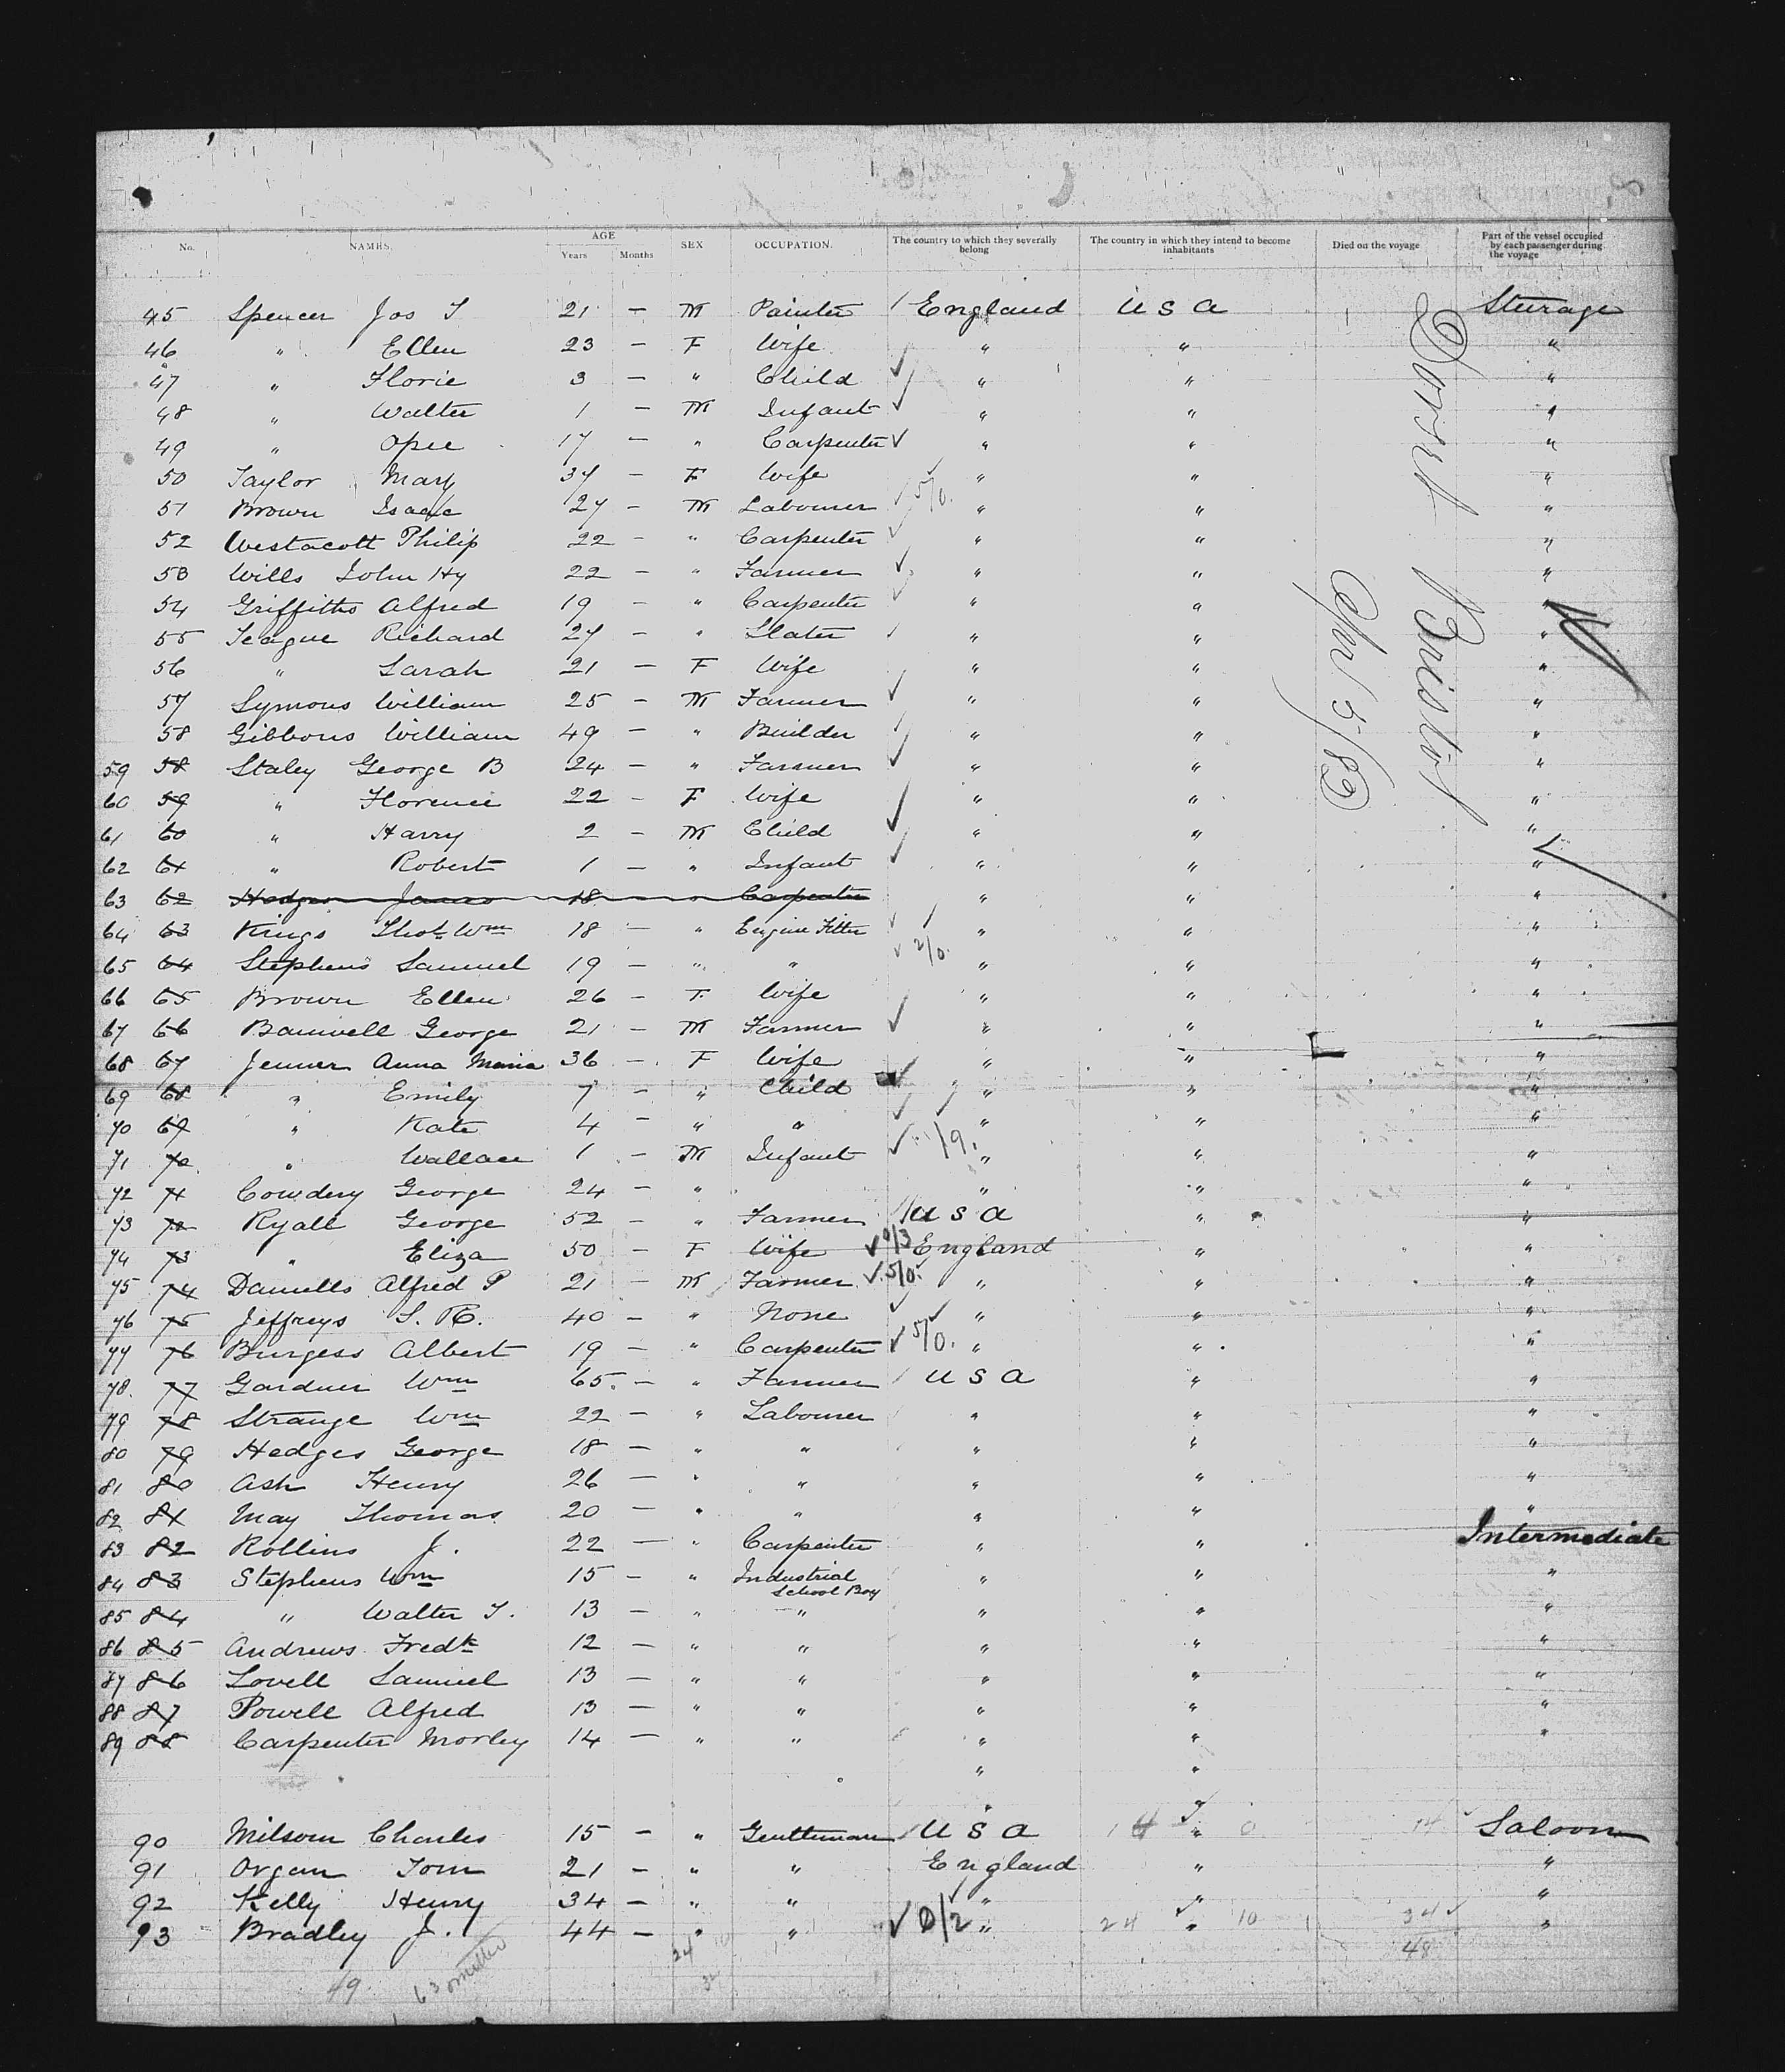 No. NAMES. AGE Years Months SEX OCCUPATION. The country to which they severally belong The country in which they intend to become inhabitants Died on the voyage Part of the vessel occupied by each passenger during the voyage
45 Spencer Jos T 21 — M Painter England U S A Steerage
46 " Ellen 23 — F Wife " " "
47 " Florie 3 — " Child " " "
48 " Walter 1 — M Infant " " "
49 " Opie 17 — " Carpenter " " "
50 Taylor Mary 37 — F Wife " " "
51 Brown Isaac 27 — M Labourer 5/0. " " "
52 Westacott Philip 22 — " Carpenter " " "
53 Wills John Hy 22 — " Farmer " " "
54 Griffiths Alfred 19 — " Carpenter " " "
55 Teague Richard 27 — " Slater " " "
56 " Sarah 21 — F Wife " " "
57 Symons William 25 — M Farmer " " "
58 Gibbons William 49 — " Builder " " "
59 58 Staley George B 24 — " Farmer " " "
60 59 " Florence 22 — F Wife " " "
61 60 " Harry 2 — M Child " " "
62 61 " Robert 1 — " Infant " " "
63 62 Hedges James 18 — " Carpenter " " "
64 63 Kings Thos Wm 18 — " Engine Fitter " " "
65 64 Stephens Samuel 19 — " " 2/0. " " "
66 65 Brown Ellen 26 — F Wife " " "
67 66 Banwell George 21 — M Farmer " " "
68 67 Jenner Anna Maria 36 — F Wife " " "
69 68 " Emily 7 — " Child " " "
70 69 " Kate 4 — " " " " "
71 70 " Wallace 1 — M Infant 1/9. " " "
72 71 Cowdery George 24 — " " " "
73 72 Ryall George 52 — " Farmer U S A " "
74 73 " Eliza 50 — F Wife 0/3 England " "
75 74 Daniells Alfred P 21 — M Farmer 5/0. " " "
76 75 Jeffreys S. R. 40 — " None " " "
77 76 Burgess Albert 19 — " Carpenter 5/0. " " "
78 77 Gardner Wm 65 — " Farmer U S A " "
79 78 Strange Wm 22 — " Labourer " " "
80 79 Hedges George 18 — " " " " "
81 80 Ash Henry 26 — " " " " "
82 81 May Thomas 20 — " " " " "
83 82 Rollins J. 22 — " Carpenter " " Intermediate
84 83 Stephens Wm 15 — " Industrial School Boy " " "
85 84 " Walter T. 13 — " " " " "
86 85 Andrews Fredk 12 — " " " " "
87 86 Lovell Samuel 13 — " " " " "
88 87 Powell Alfred 13 — " " " " "
89 88 Carpenter Morley 14 — " " " " "
" "
90 Milsom Charles 15 — " Gentleman U S A " 0 14 Saloon
91 Organ Tom 21 — " " England " "
92 Kelly Henry 34 — " " " " "
93 Bradley J. 44 — " " 0/2 " 24 " 10 34 "
24 48
49. 63
Dorset Bristol
Apr 5/89